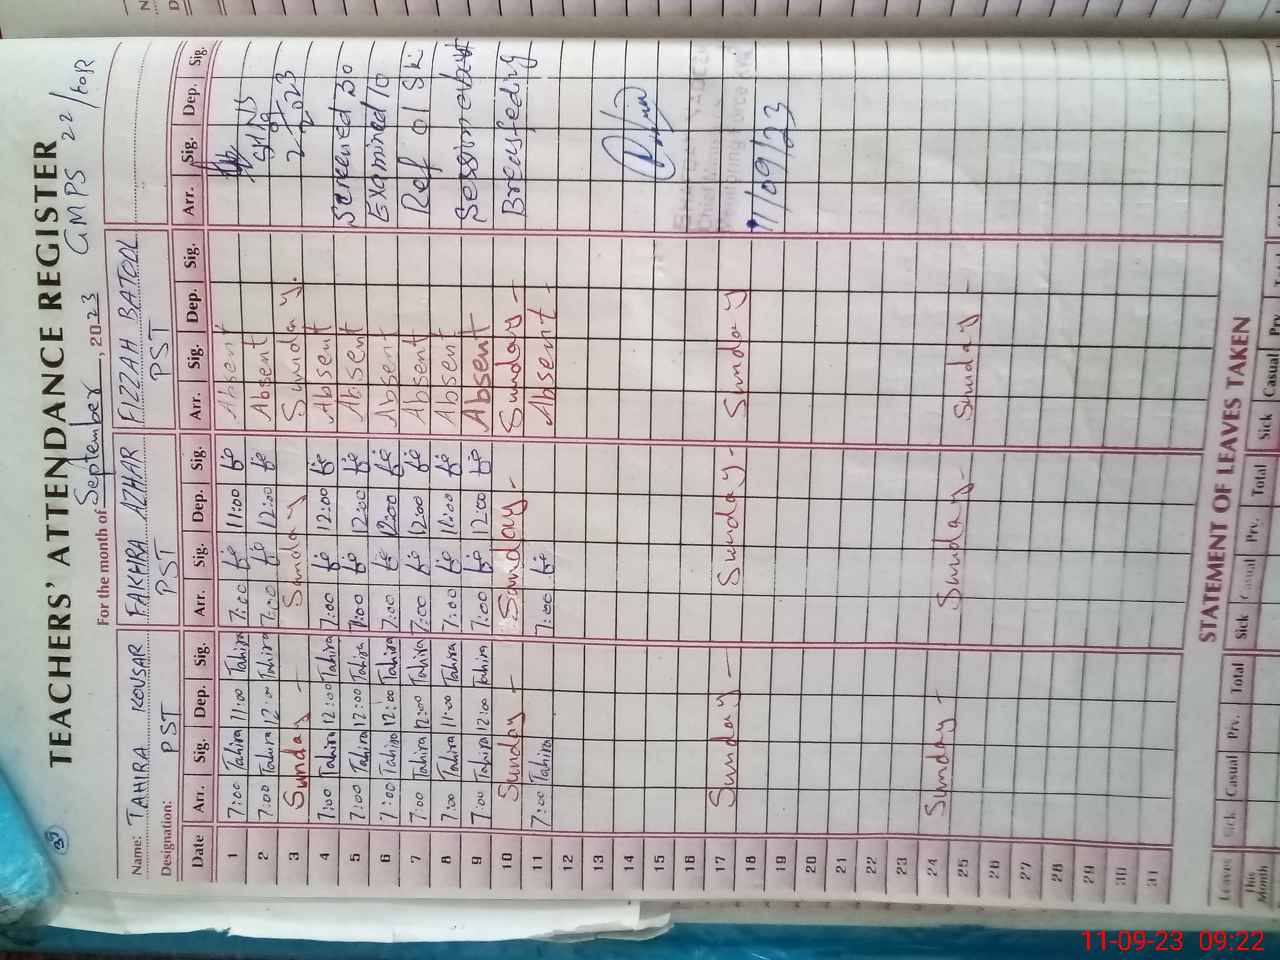 TEACHERS' ATTENDANCE REGISTER
For the month of September, 2023 GMPS 22/10R
Name: TAHIRA KOUSAR FAKHRA AZHAR FIZZAH BATOOL
Designation: PST PST PST
Date Arr. Sig. Dep. Sig. Arr. Sig. Dep. Sig. Arr. Sig. Dep. Sig. Arr. Sig. Dep. Sig.
1 7:00 Tahira 11:00 Tahira 7:00 11:00 Absent
2 7:00 Tahira 12:00 Tahira 7:00 12:00 Absent
3 Sunday Sunday Sunday.
4 7:00 Tahira 12:00 Tahira 7:00 12:00 Absent Screened 30
5 7:00 Tahira 12:00 Tahira 7:00 12:00 Absent Examined 10
6 7:00 Tahira 12:00 Tahira 7:00 12:00 Absent Ref 01
7 7:00 Tahira 12:00 Tahira 7:00 12:00 Absent
8 7:00 Tahira 11:00 Tahira 7:00 11:00 Absent Session
9 7:00 Tahira 12:00 Tahira 7:00 12:00 Absent Breasfeding
10 Sunday - Sunday - Sunday -
11 7:00 Tahira 7:00 Absent -
12
13
14
15
16
17 Sunday - Sunday - Sunday
18
19
20
21
22
23
24 Sunday - Sunday - Sunday -
25
26
27
28
29
30
31
STATEMENT OF LEAVES TAKEN
Leaves Sick Casual Prv. Total Sick Casual Prv. Total Sick Casual Prv. Total
This Month
11-09-23 09:22